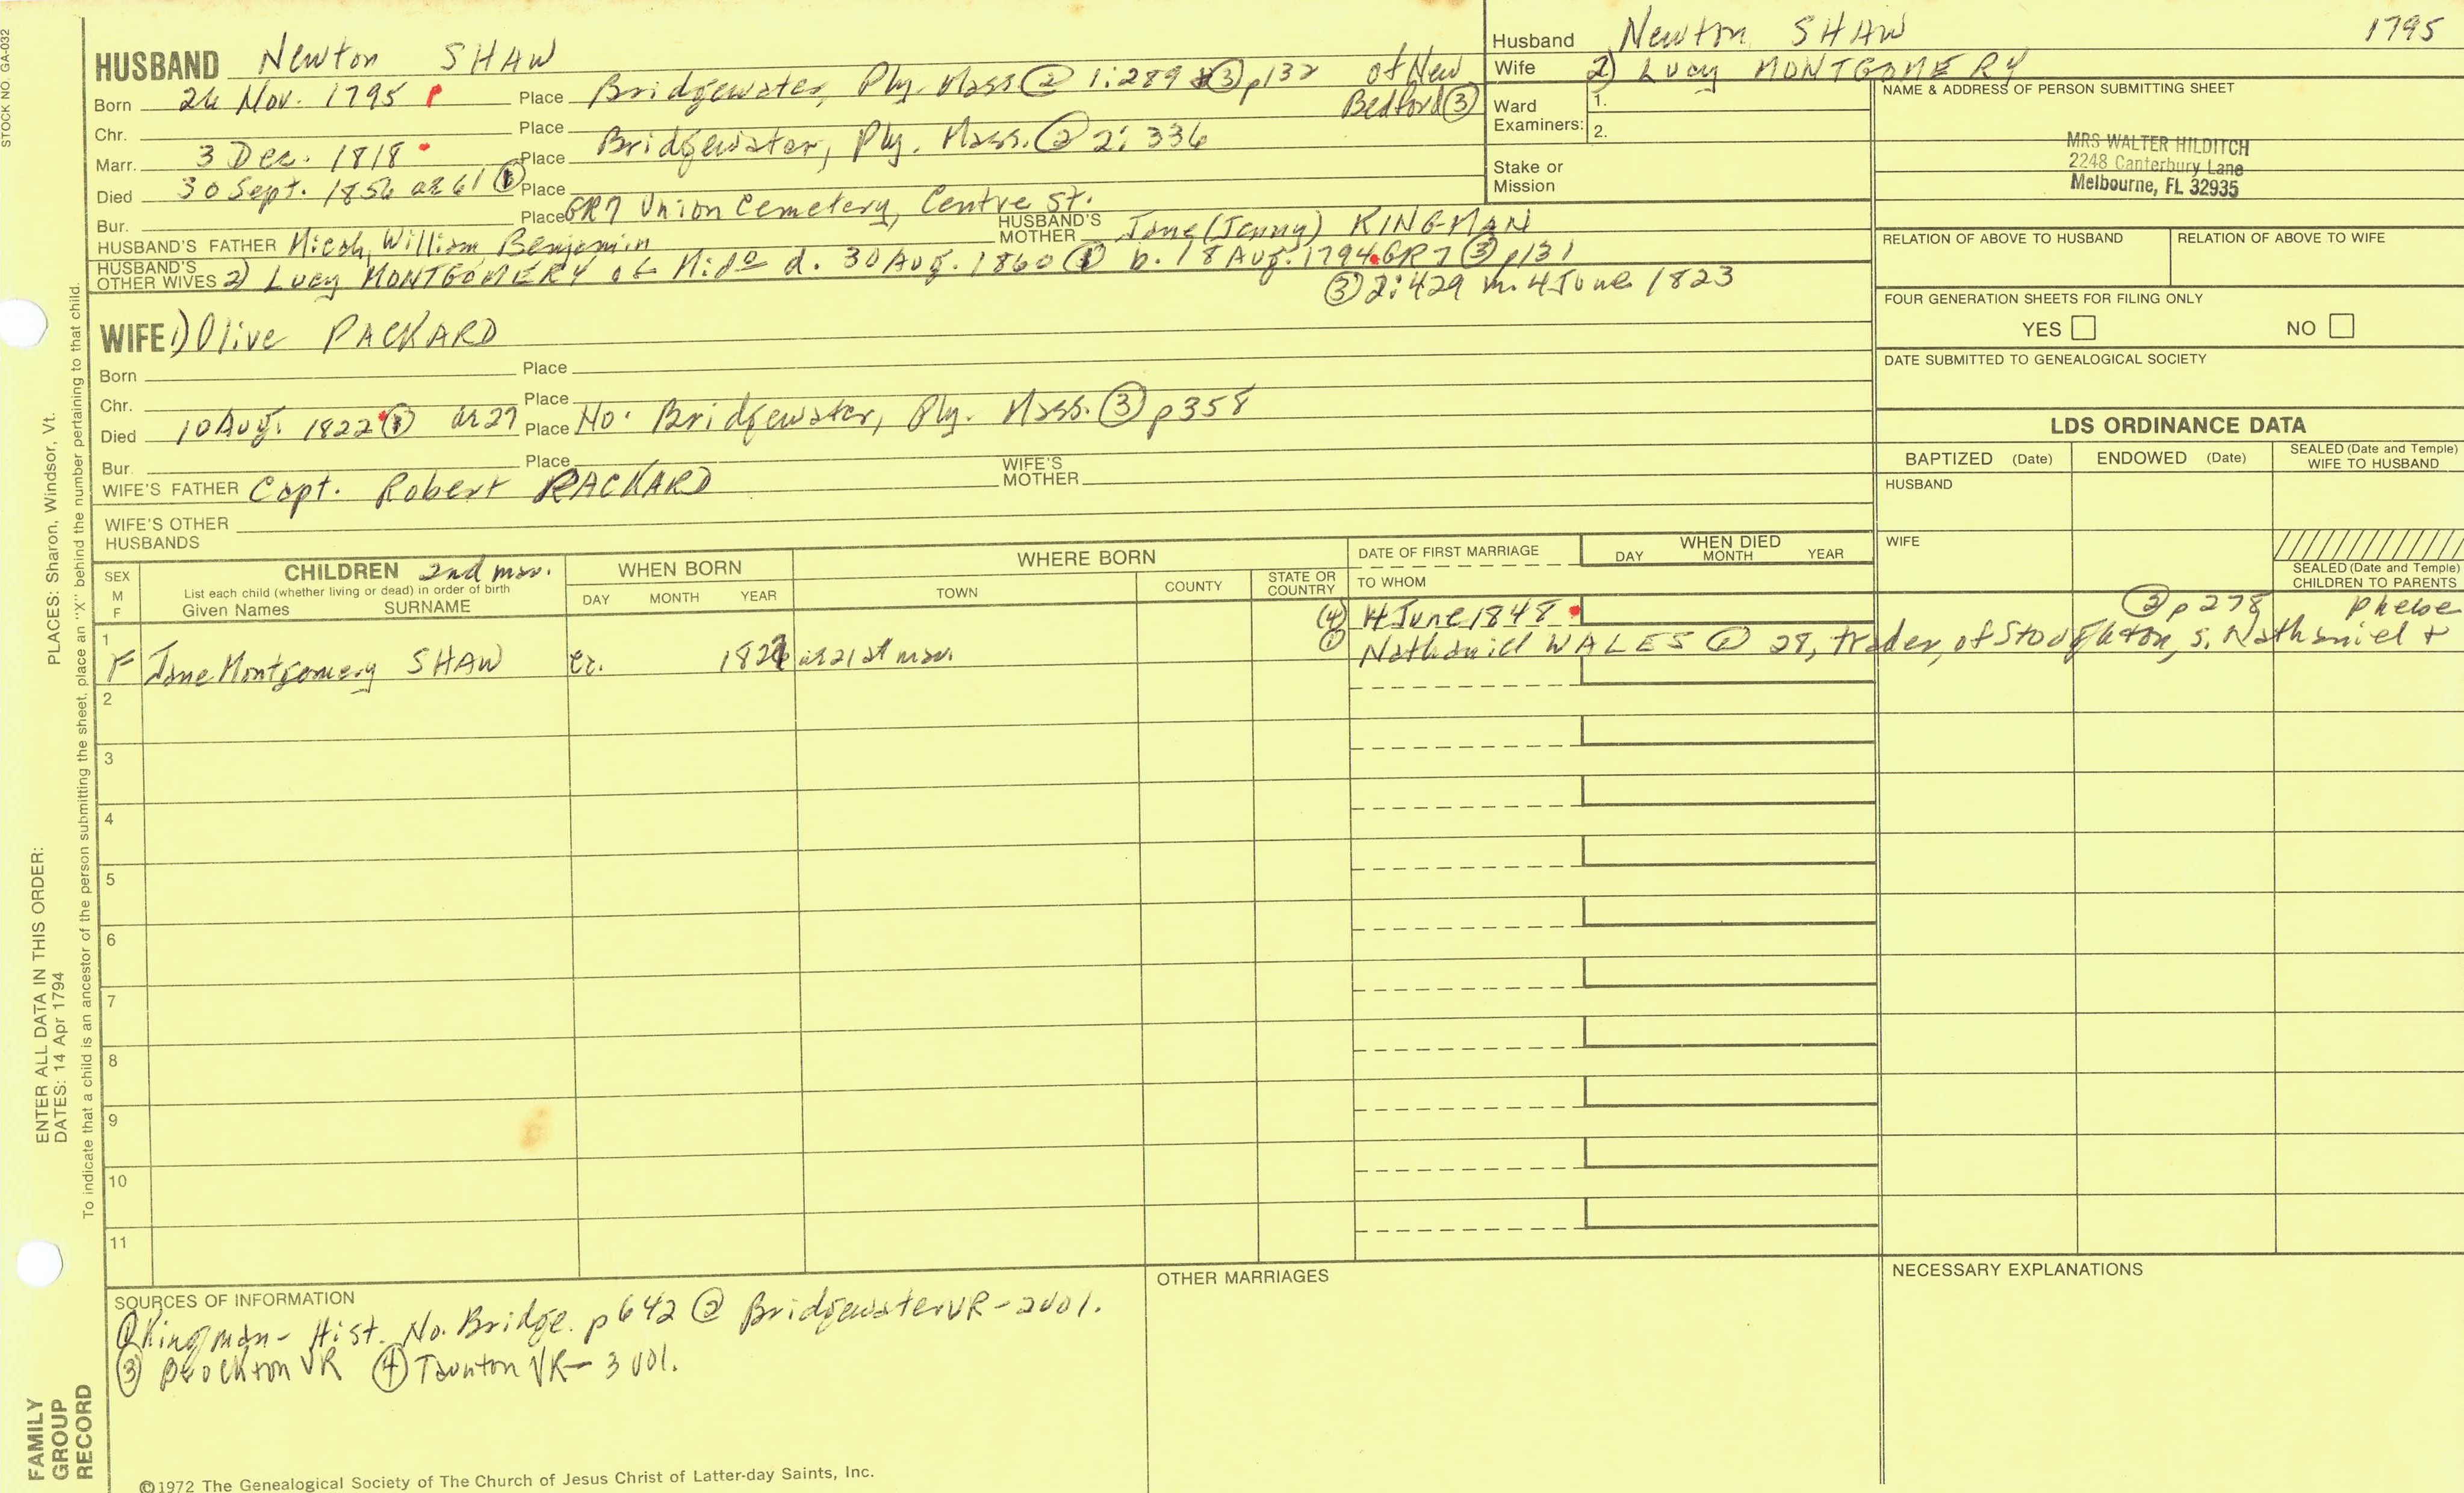 STOCK NO. GA-032
PLACES: Sharon, Windsor, Vt.
ENTER ALL DATA IN THIS ORDER:
DATES: 14 Apr 1794
To indicate that a child is an ancestor of the person submitting the sheet, place an "X" behind the number pertaining to that child.
FAMILY
GROUP
RECORD
HUSBAND Newton SHAW
Born 24 Nov. 1795 Place Bridgewater, Ply. Mass ② 1:289 ③ p132 of New
Bedford ③
Chr. Place
Marr. 3 Dec. 1818 Place Bridgewater, Ply. Mass. ② 2:336
Died 30 Sept. 1856 ae 61 ① Place
Bur. Place GR7 Union Cemetery, Centre St.
HUSBAND'S FATHER Micah, William Benjamin HUSBAND'S MOTHER Jane (Jenny) KINGMAN
HUSBAND'S OTHER WIVES 2) Lucy MONTGOMERY of d. 30 Aug. 1860 ① b. 18 Aug. 1794 GR7 ③ p131
③ 2:429 m. 4 June 1823
WIFE 1) Olive PACKARD
Born Place
Chr. Place
Died 10 Aug. 1822 ① ae 27 Place No. Bridgewater, Ply. Mass. ③ p358
Bur. Place
WIFE'S FATHER Capt. Robert PACKARD WIFE'S MOTHER
WIFE'S OTHER HUSBANDS
Husband Newton SHAW 1795
Wife 2) Lucy MONTGOMERY
Ward Examiners: 1.
2.
Stake or Mission
NAME & ADDRESS OF PERSON SUBMITTING SHEET
MRS WALTER HILDITCH
2248 Canterbury Lane
Melbourne, FL 32935
RELATION OF ABOVE TO HUSBAND RELATION OF ABOVE TO WIFE
FOUR GENERATION SHEETS FOR FILING ONLY
YES NO
DATE SUBMITTED TO GENEALOGICAL SOCIETY
LDS ORDINANCE DATA
BAPTIZED (Date) ENDOWED (Date) SEALED (Date and Temple) WIFE TO HUSBAND
HUSBAND
WIFE
SEALED (Date and Temple) CHILDREN TO PARENTS
SEX M F CHILDREN 2nd mar. WHEN BORN WHERE BORN DATE OF FIRST MARRIAGE WHEN DIED
List each child (whether living or dead) in order of birth
Given Names SURNAME DAY MONTH YEAR TOWN COUNTY STATE OR COUNTRY TO WHOM DAY MONTH YEAR
(4) 14 June 1848 ③ p278 Phebe
1 F Jane Montgomery SHAW ca. 1827 ae 21 at mar. ① Nathaniel WALES ② 28, trader, of Stoughton, s. Nathaniel +
2
3
4
5
6
7
8
9
10
11
SOURCES OF INFORMATION
① Kingman - Hist. No. Bridge. p642 ② Bridgewater VR - 2 vol.
③ Brockton VR ④ Taunton VR - 3 vol.
OTHER MARRIAGES
NECESSARY EXPLANATIONS
©1972 The Genealogical Society of The Church of Jesus Christ of Latter-day Saints, Inc.